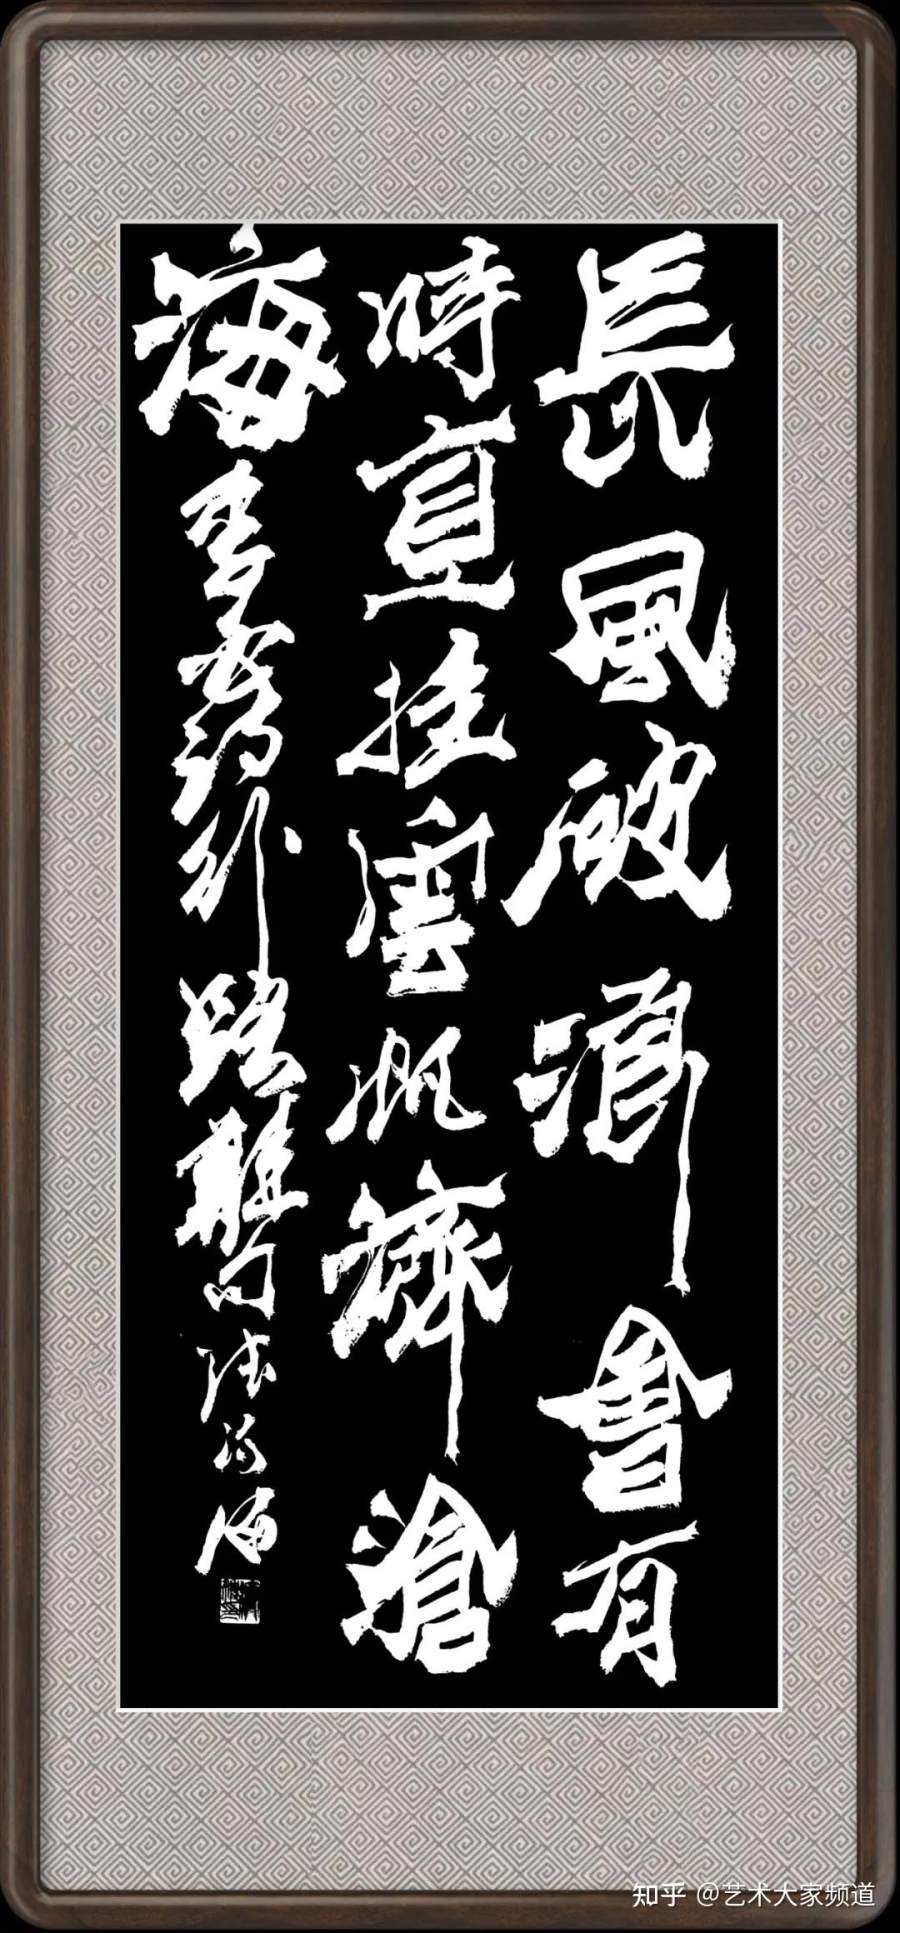 長風破浪會有
時直掛雲帆濟滄
海 李白詩行路難句
知乎 @艺术大家频道